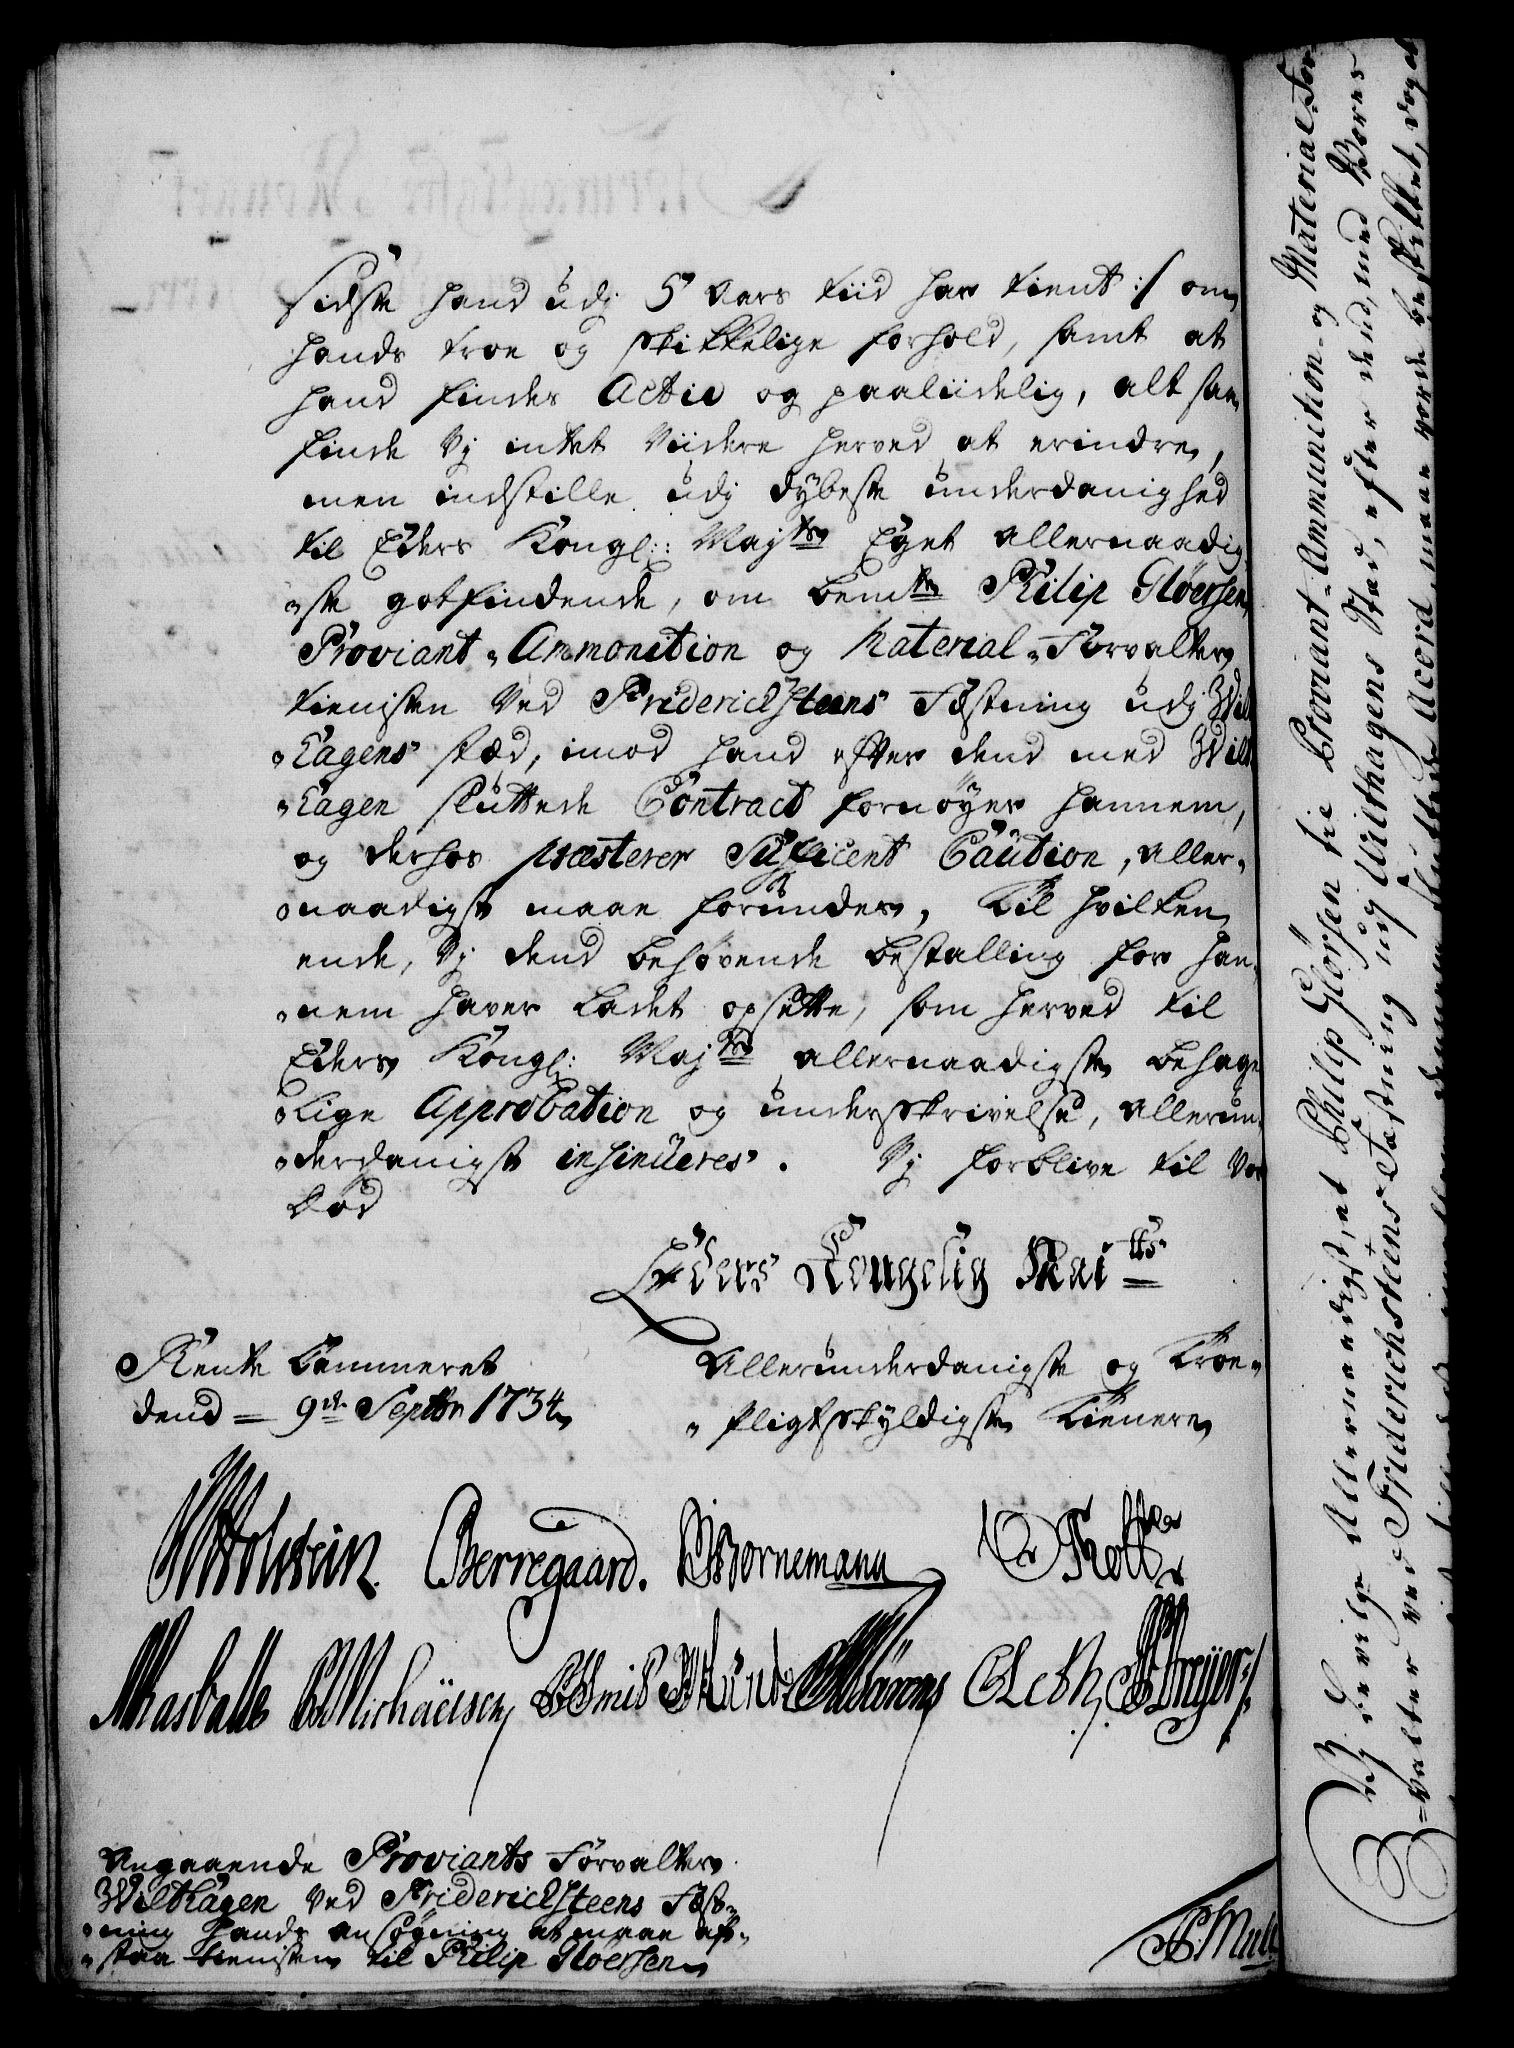 sidste hand udj 5 Aars tiid har tient :/ om
hands troe og skikkelige forhold, samt at
hand findes Active og paaliidelig, alt saa
finde Vj intet Viidere herved at erindre,
men indstille udj dybeste underdanighed
til Eders Kongl: Majts Eget allernaadig¬
ste gotfindende, om bemte Philip Gløersen
Proviant- Ammonition og Material-Forvalter
tienisten Ved Friderichsteens Fæstning udj Wilt¬
hagens stæd, imod hand efter dend med Wilt¬
hagen sluttede Contract fornøyer hannem,
og derhos præsterer Suficent Caution, aller¬
naadigst maae forundes, til hvilken
ende, Vj dend behøvende bestalling for han¬
nem haver ladet opsætte, som herved til
Eders Kongl: Majts allernaadigste behage¬
lige Approbation og underskrivelse, allerun¬
derdanigst insinueres. Vj forblive til Vor
død
Eders Kongelig Maits
Rente Cammeret
dend 9de Septbr 1734
Allerunderdanigste og troe¬
pligtskyldigste tienere
Holstein Berregaard. Bornemann
Michaëlsen
Angaaende Proviants Forvalter
Wilthagen Ved Friderichsteens Fæst¬
ning hands ansøgning at maae af¬
staa tienisten til Philip Gløersen
Vj bevilge Allernaadigst, at Philip Gløersen til Proviant- Ammunition- og Material-For¬
valter ved Friderichsteens Fæstning udj Wilthagens Stæd, efter dend, med Bemte
Acord maae vorde beskikket, dog at